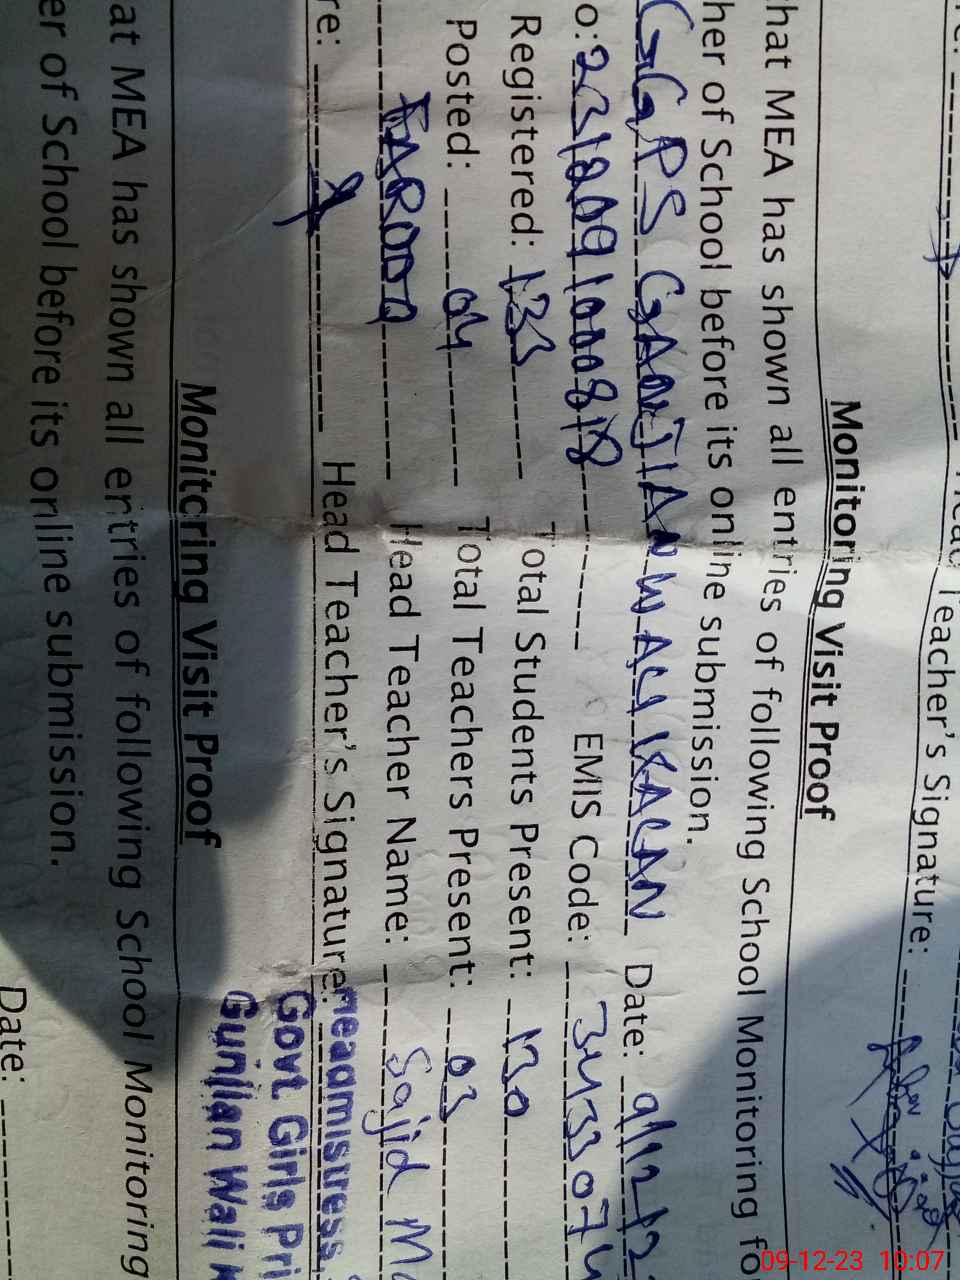 Teacher's Signature:
Monitoring Visit Proof
that MEA has shown all entries of following School Monitoring fo
her of School before its online submission.
GGPS GANJIAN WALI KACAN Date: 9/12/2
o: EMIS Code: 3433074
Registered: 133 Total Students Present: 130
Posted: 04 Total Teachers Present: 03
FAROOQ Head Teacher Name: Sajid
re: Head Teacher's Signature:
Headmistress
Govt Girls Pri
Gunjian Wali
Monitoring Visit Proof
at MEA has shown all entries of following School Monitoring
er of School before its online submission.
Date:
09-12-23 10:07